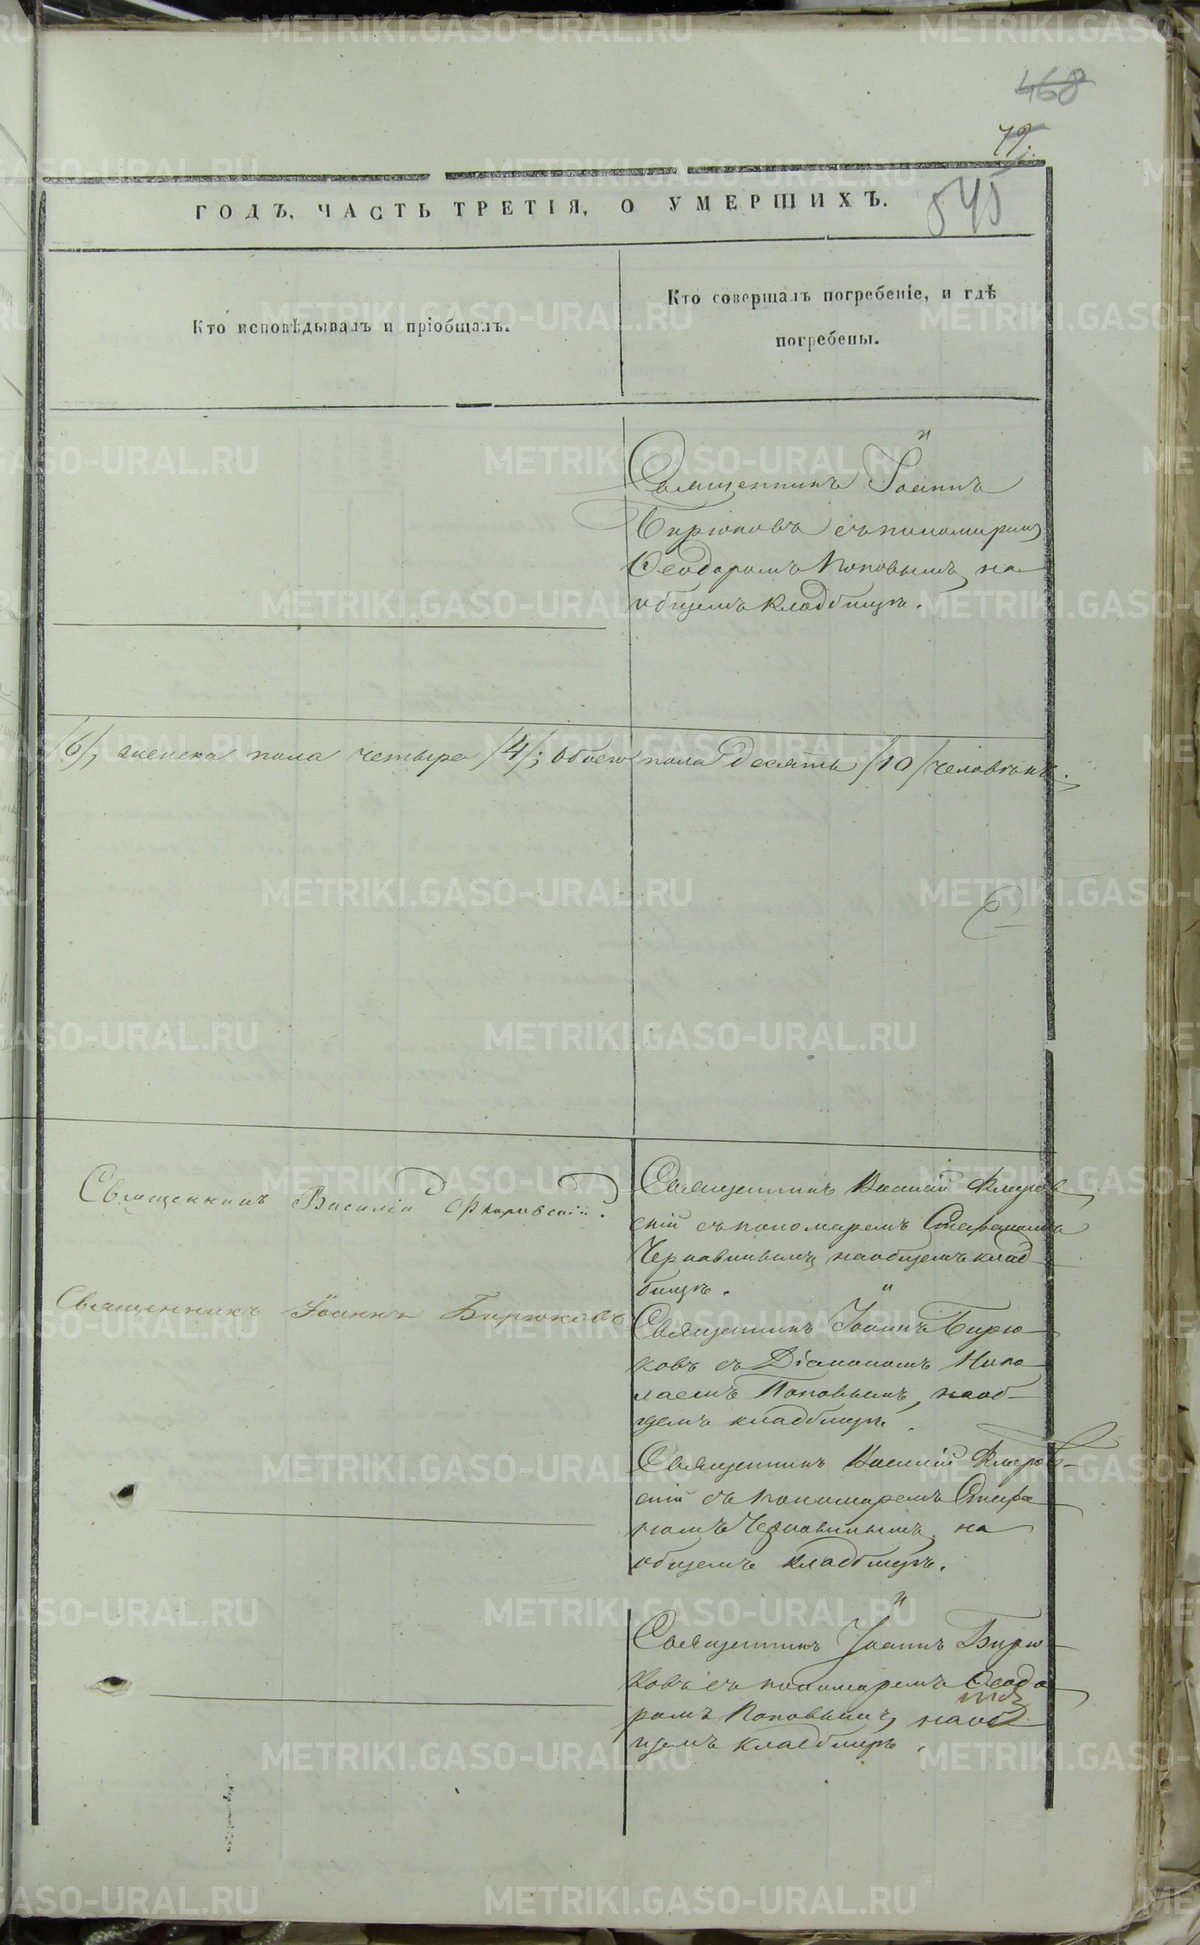 468
79.
545
ГОДЪ, ЧАСТЬ ТРЕТІЯ, О УМЕРШИХЪ.
Кто исповѣдывалъ и пріобщалъ.
Кто совершалъ погребеніе, и гдѣ
погребены.
Священникъ Іоаннъ
Бирюковъ съ пономаремъ
Ѳеодоромъ Поповымъ на
общемъ кладбищѣ.
/6/, женска пола четыре /4/; обоего пола десять /10/ человѣкъ.
Священникъ Василій Флоровскій.
Священникъ Василій Флоров
скій съ пономаремъ Стефаномъ
Чернавинымъ на общемъ клад
бищѣ.
Священникъ Іоаннъ Бирюковъ
Священникъ Іоаннъ Бирю
ковъ съ Діакономъ Нико
лаемъ Поповымъ, на об
щемъ кладбищѣ.
Священникъ Василій Флоров
скій съ пономаремъ Стефа
номъ Чернавинымъ на
общемъ кладбищѣ.
Священникъ Іоаннъ Бирю
ковъ съ пономаремъ Ѳеодо
ромъ Поповымъ, на об
щемъ кладбищѣ.
METRIKI.GASO-URAL.RU